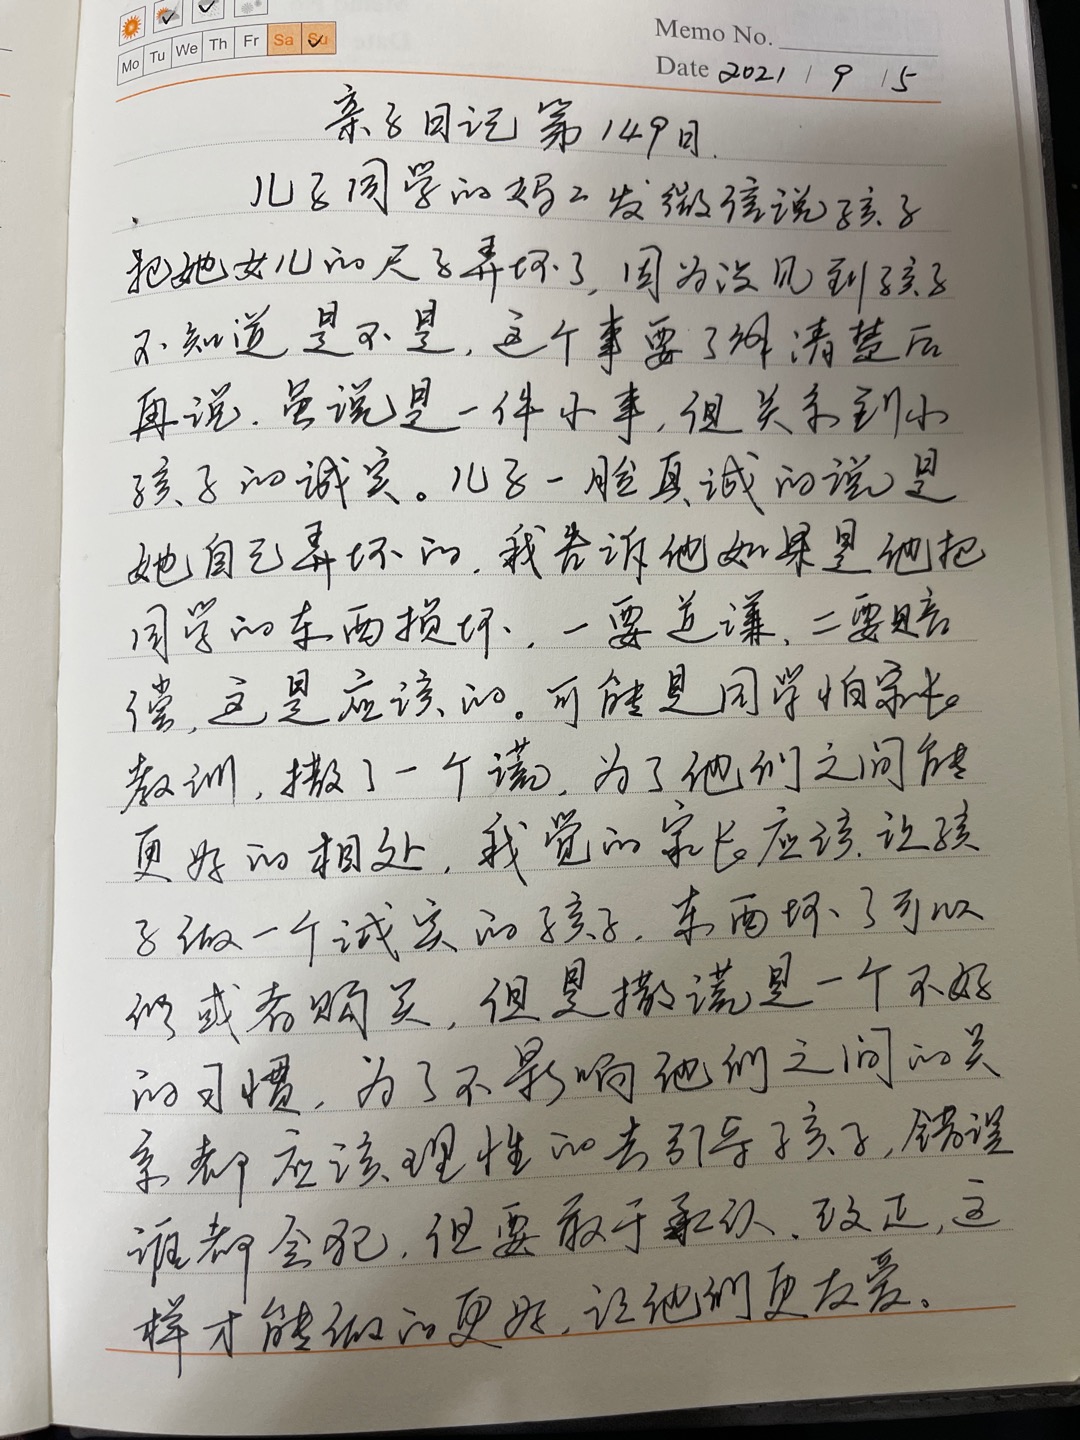 Mo Tu We Th Fr Sa Su
Memo No.
Date 2021 / 9 / 5
亲子日记第149日.
儿子同学的妈妈发微信说孩子
把她女儿的尺子弄坏了,因为没见到孩子
不知道是不是,这个事要了解清楚后
再说.虽说是一件小事,但关系到小
孩子的诚实。儿子一脸真诚的说是
她自己弄坏的,我告诉他如果是他把
同学的东西损坏,一要道谦,二要赔
偿,这是应该的。可能是同学怕家长
教训,撒了一个谎,为了他们之间能
更好的相处,我觉的家长应该让孩
子做一个诚实的孩子.东西坏了可以
修或者购买,但是撒谎是一个不好
的习惯,为了不影响他们之间的关
系都应该理性的去引导孩子,错误
谁都会犯,但要敢于承认、改正,这
样才能做的更好,让他们更友爱。